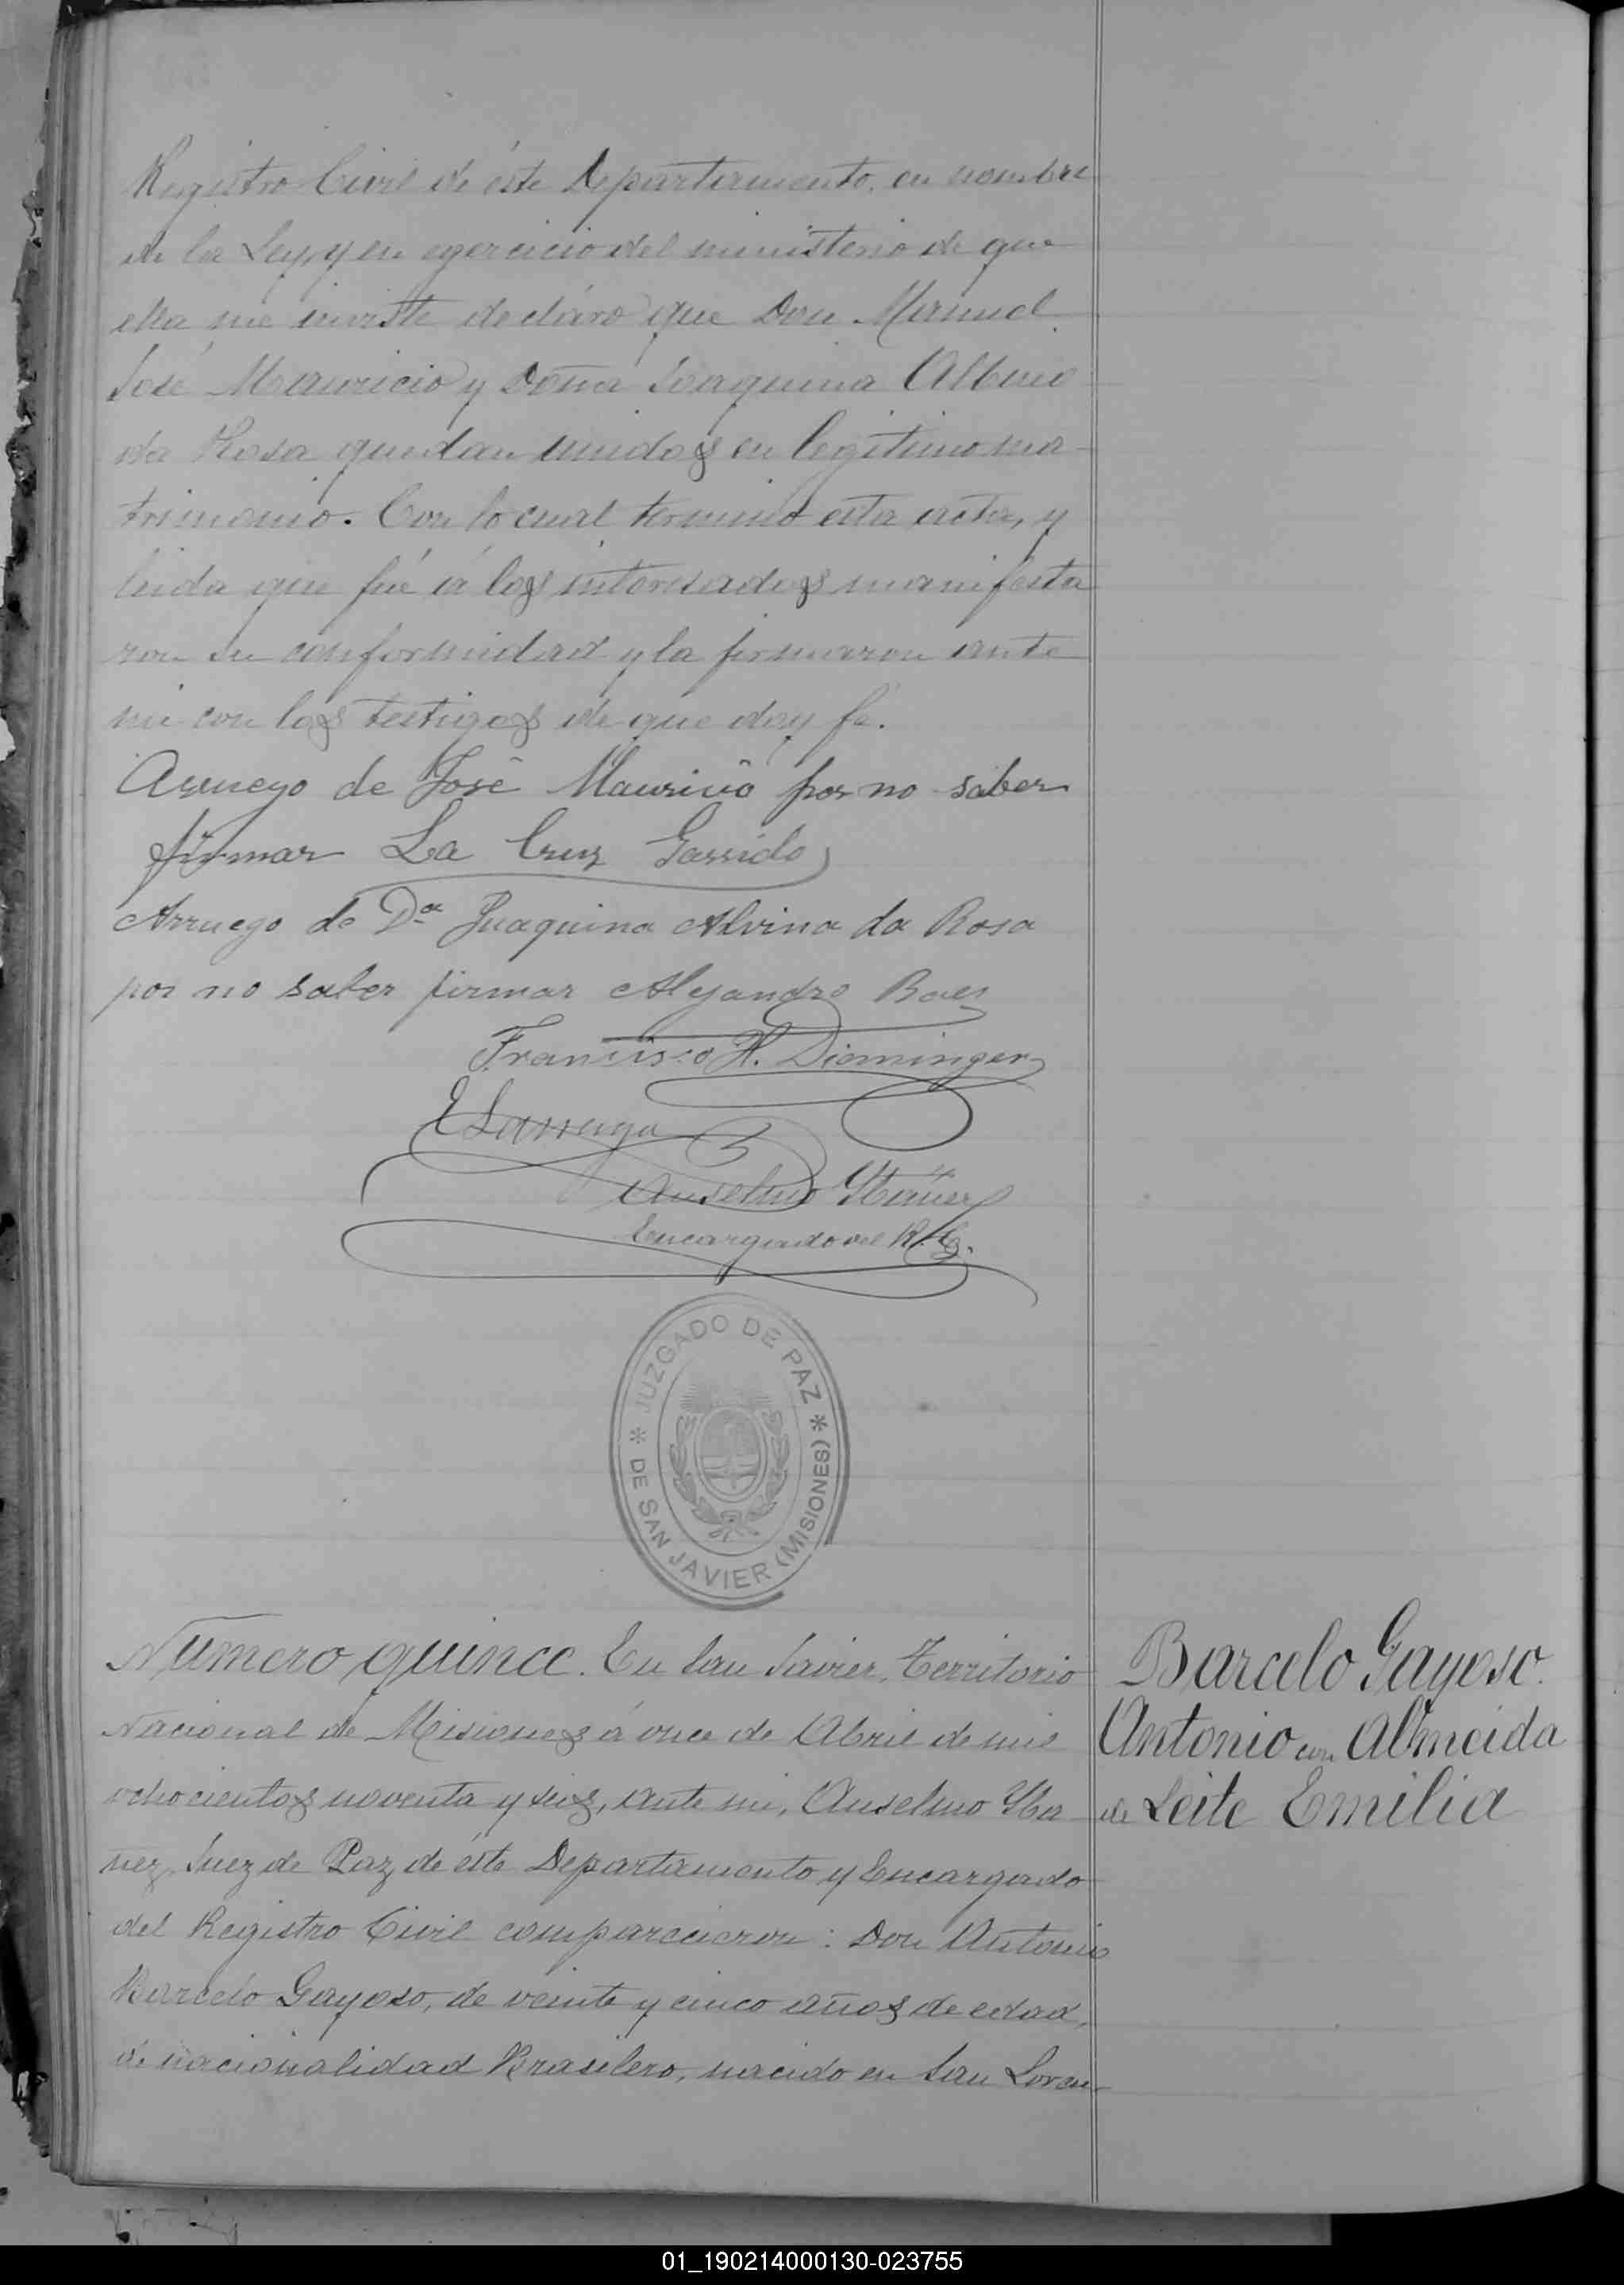 Registro Civil de éste Departamento, en nombre
de la Ley, y en egercicio del ministerio de que
ella me inviste declaro que Don Manuel
José Mauricio y Doña Joaquina Albino
da Rosa quedan unidos en legitimo ma-
trimonio. Con lo cual terminó esta acta, y
leida que fué á los interesados manifesta
ron su conformidad y la firmaron ante
mi con los testigos de que doy fé.
Arruego de José Mauricio por no saber
firmar La Cruz Garrido
Arruego de Dª Juaquina Alvina da Rosa
por no saber firmar Alejandro Baez
Francisco H. Dieminger
E Larraya
Anselmo Ybañez
Encargado del R. C.
JUZGADO DE PAZ
* DE SAN JAVIER (MISIONES) *
Número quince. En San Javier, Territorio
Nacional de Misiones á once de Abril de mil
ochocientos noventa y seis, ante mi, Anselmo Yba
ñez, Juez de Paz de éste Departamento y Encargado
del Registro Civil comparecieron: Don Antonio
Barcelo Gayoso, de veinte y cinco años de edad,
de nacionalidad Brasilero, nacido en San Loren-
Barcelo Gayoso.
Antonio con Almeida
de Leite Emilia
01_190214000130-023755